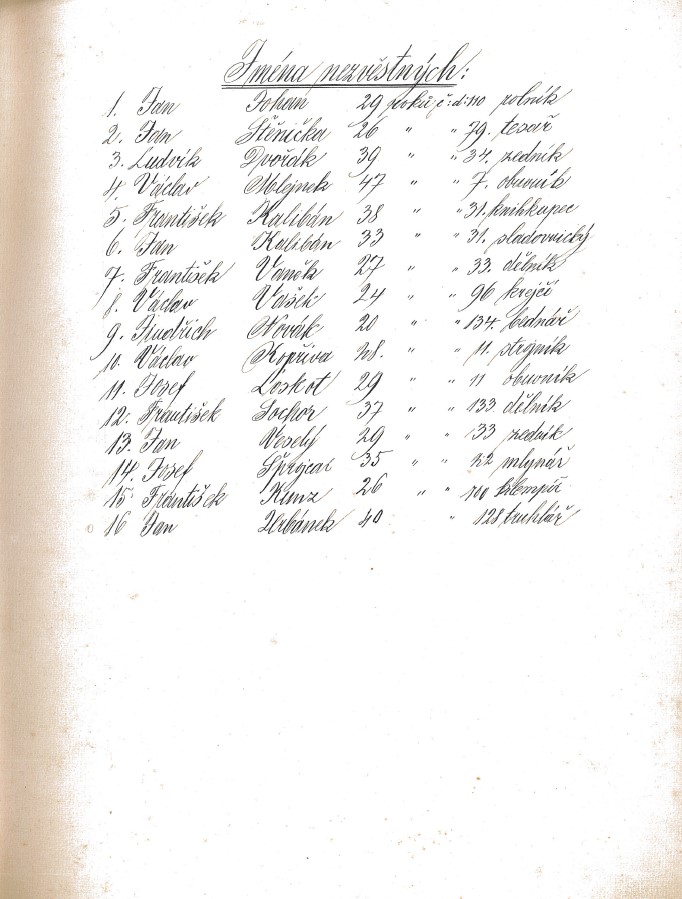 Jména nezvěstných:
1. Jan Johan 29 roků č: d: 110 rolník
2. Jan Štěnička 26 " " 79. tesař
3. Ludvík Dvořák 39 " " 34. zedník
4. Václav Mlejnek 47 " " 7. obuvník
5. František Kalibán 38 " " 31. knihkupec
6. Jan Kalibán 33 " " 31. sladovnický
7. František Vaněk 27 " " 33. dělník
8. Václav Vašek 24 " " 96 krejčí
9. Jindřich Novák 20 " " 134. bednář
10. Václav Kopřiva 28. " " 11. strojník
11. Josef Loskot 29 " " 11 obuvník
12. František Sochor 37 " " 133. dělník
13. Jan Veselý 29 " " 33 zedník
14. Josef 35 " " 22 mlynář
15 František Kunz 26 " " 100 klempíř
16 Jan Urbánek 40 " 128 truhlář